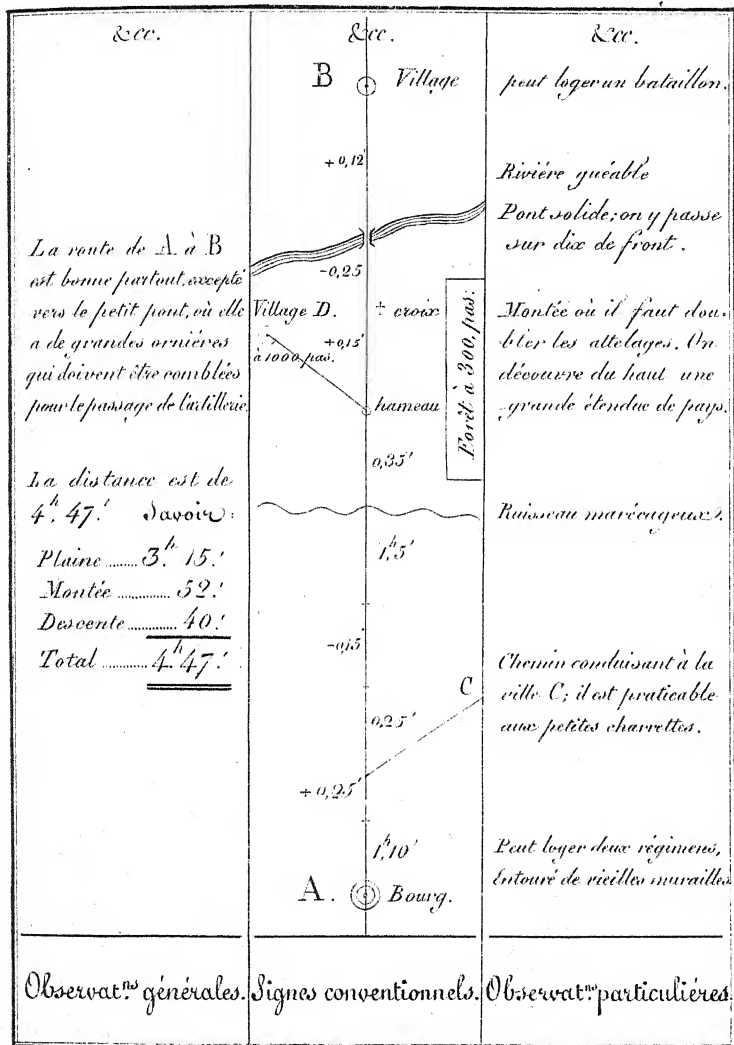 &cc.
La route de A à B
est bonne partout, excepté
vers le petit pont, où elle
a de grandes ornières
qui doivent être comblées
pour le passage de l'artillerie.
La distance est de
4.h 47.' Savoir:
Plaine ........ 3.h 15.'
Montée ............. 52.'
Descente ........... 40.'
Total .......... 4.h 47.'
Observat.ns générales.
&cc.
B Village
+0,12'
-0,25
Village D.
+ croix
+0,15'
à 1000, pas.
Forêt à 300, pas.
hameau
0,35'
1,h5'
-0,15
C
0,25'
+0,25'
1,h10'
A. Bourg.
Signes conventionnels.
&cc.
peut loger un bataillon.
Riviére guéable
Pont solide; on y passe
sur dix de front.
Montée où il faut dou-
bler les attelages. On
découvre du haut une
grande étendue de pays.
Ruisseau marécageux.
Chemin conduisant à la
ville C; il est praticable
aux petites charrettes.
Peut loger deux régimens,
Entouré de vieilles murailles
Observat.ns particuliéres.